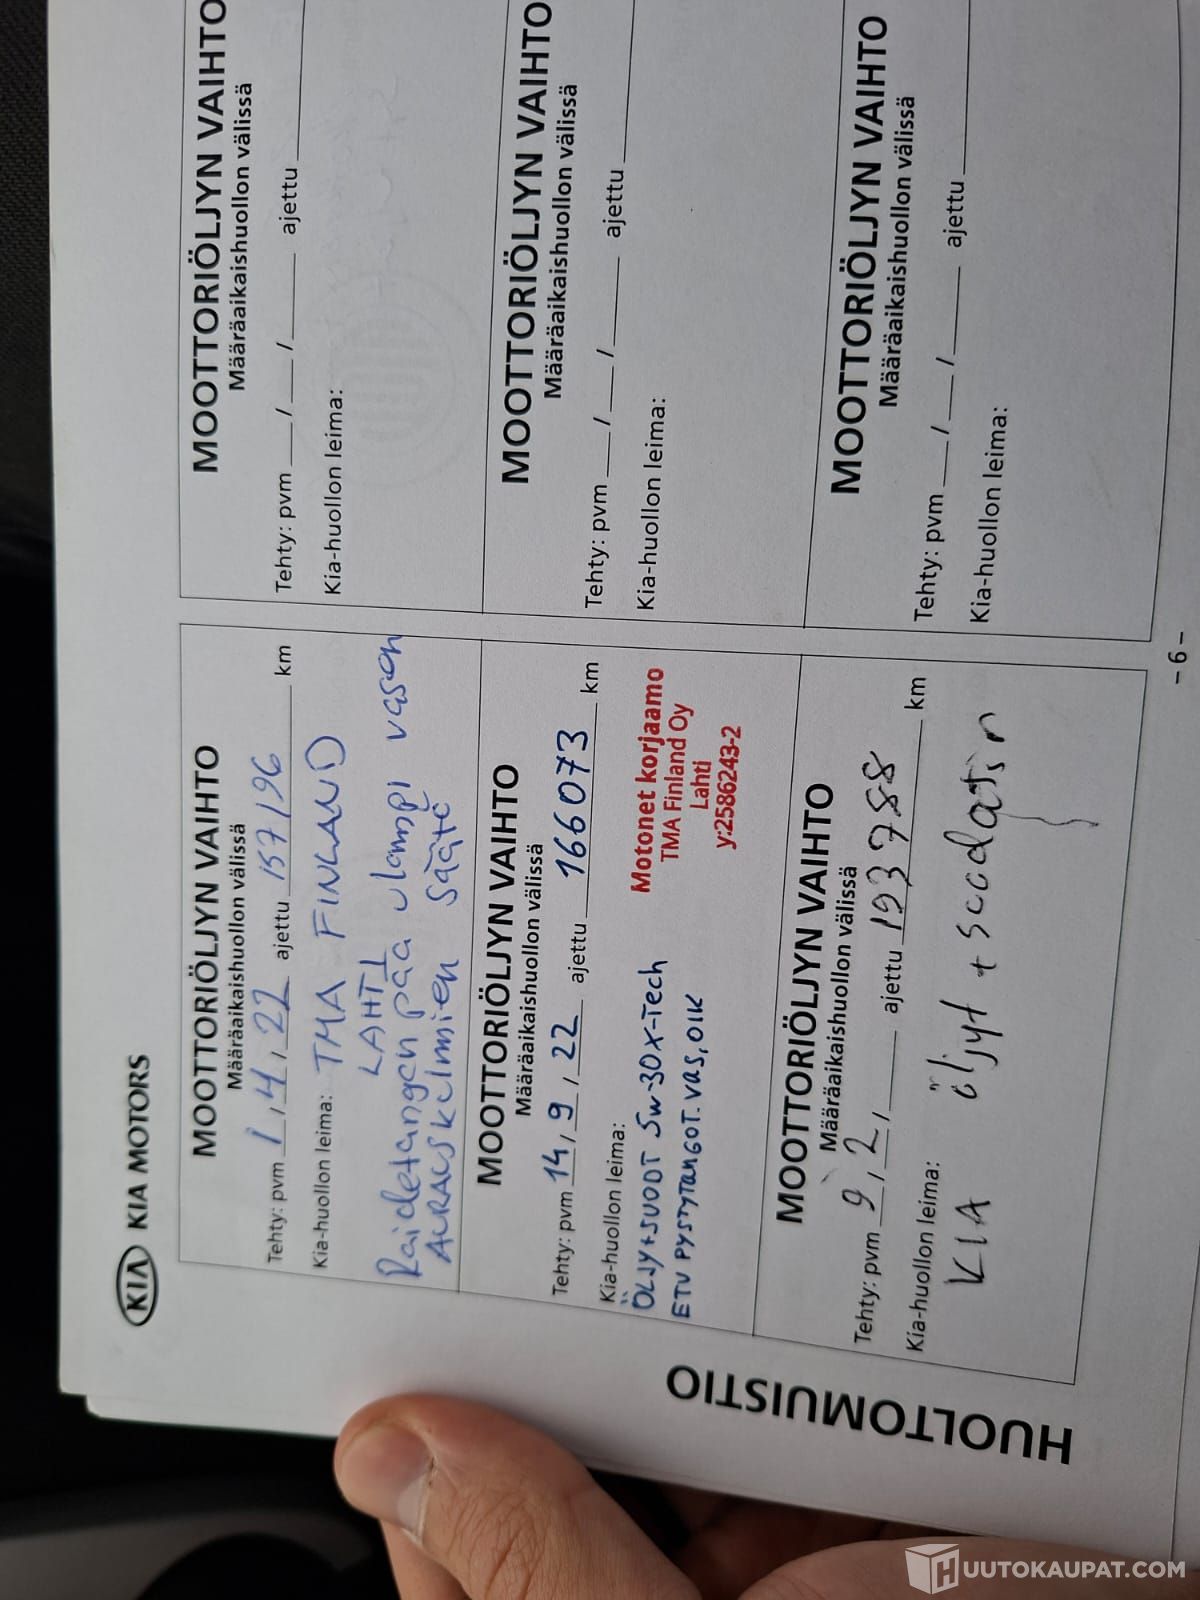 KIA KIA MOTORS
MOOTTORIÖLJYN VAIHTO
Määräaikaishuollon välissä
Tehty: pvm 1 / 4 / 22 ajettu 157196 km
Kia-huollon leima: TMA FINLAND
LAHTI
Raidetangen pää ulompi vasen
AURAUSKULMIEN SÄÄTÖ
MOOTTORIÖLJYN VAIHTO
Määräaikaishuollon välissä
Tehty: pvm 14 / 9 / 22 ajettu 166073 km
Kia-huollon leima:
Motonet korjaamo
TMA Finland Oy
Lahti
y:2586243-2
ÖLJY+SUODT 5W-30 X-Tech
ETU PYSTYTANGOT. VAS, OIK
MOOTTORIÖLJYN VAIHTO
Määräaikaishuollon välissä
Tehty: pvm 9 / 2 / ajettu 193788 km
Kia-huollon leima:
KIA öljyt +
MOOTTORIÖLJYN VAIHTO
Määräaikaishuollon välissä
Tehty: pvm / / ajettu
Kia-huollon leima:
MOOTTORIÖLJYN VAIHTO
Määräaikaishuollon välissä
Tehty: pvm / / ajettu
Kia-huollon leima:
MOOTTORIÖLJYN VAIHTO
Määräaikaishuollon välissä
Tehty: pvm / / ajettu
Kia-huollon leima:
- 6 -
HUOLTOMUISTIO
HUUTOKAUPAT.COM